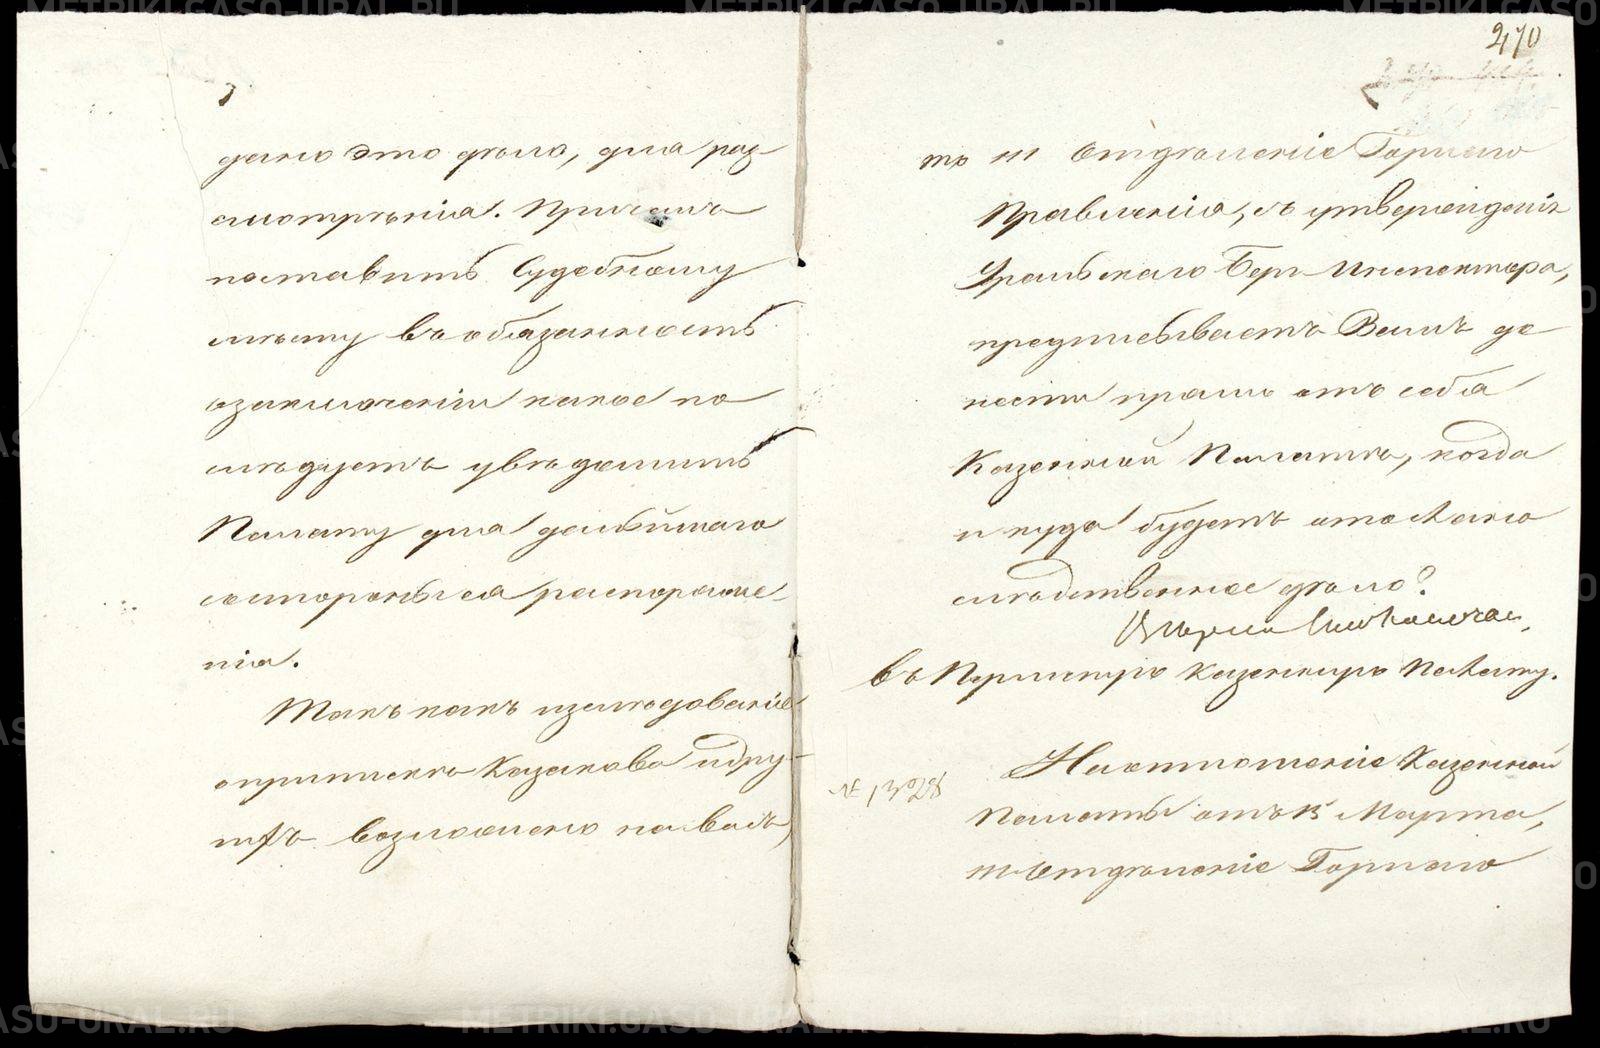 дано это дѣло, для раз-
смотрѣнія. Причемъ
поставить Судебному
мѣсту въ обязанность
о заключеніи какое по
слѣдуетъ увѣдомить
Палату для дальнѣйшаго
съ стороны ея распоряже-
нія.
Такъ какъ изслѣдованіе
о припискѣ Казакова и дру-
гихъ возложено на васъ,
270
то III Отдѣленіе Горнаго
Правленія, съ утвержденія
Уральскаго Берг-Инспектора,
предписываетъ Вамъ до
нести прямо отъ себя
Казенной Палатѣ, когда
и куда будетъ отослано
слѣдственное дѣло?
въ Пермскую Казенную Палату.
На отношеніе Казенной
№ 13028
Палаты отъ 15 Марта,
III Отдѣленіе Горнаго
METRIKI.GASO-URAL.RU